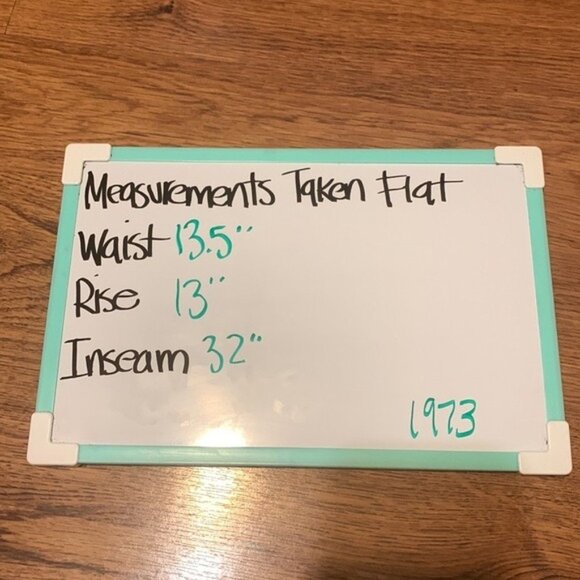 Measurements Taken Flat
Waist 13.5"
Rise 13"
Inseam 32"
1973